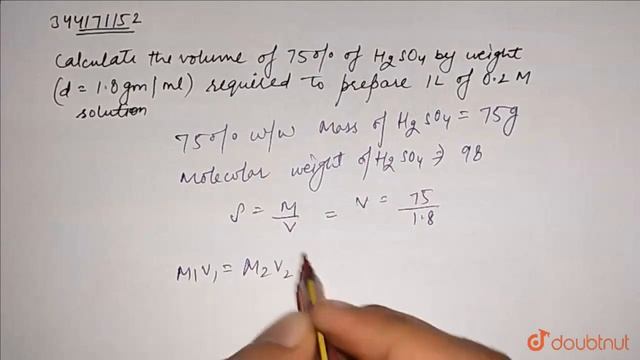 344171152
Calculate the volume of 75% of H2SO4 by weight
(d = 1.8gm/ml) required to prepare 1L of 0.2 M
solution
75% w/w Mass of H2SO4 = 75g
Molecular weight of H2SO4 ⇒ 98
ρ = M/V = V = 75/1.8
M1V1 = M2V2
doubtnut